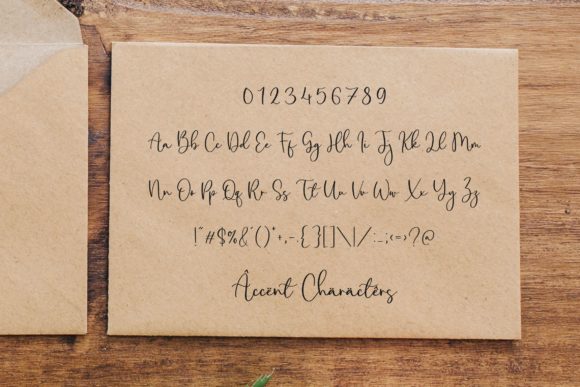 0123456789
Aa Bb Cc Dd Ee Ff Gg Hh Ii Jj Kk Ll Mm
Nn Oo Pp Qq Rr Ss Tt Uu Vv Ww Xx Yy Zz
!"#$%&'()*+,-.{}[]\|/:_;<=>?@
Âccënt Chäràctérs